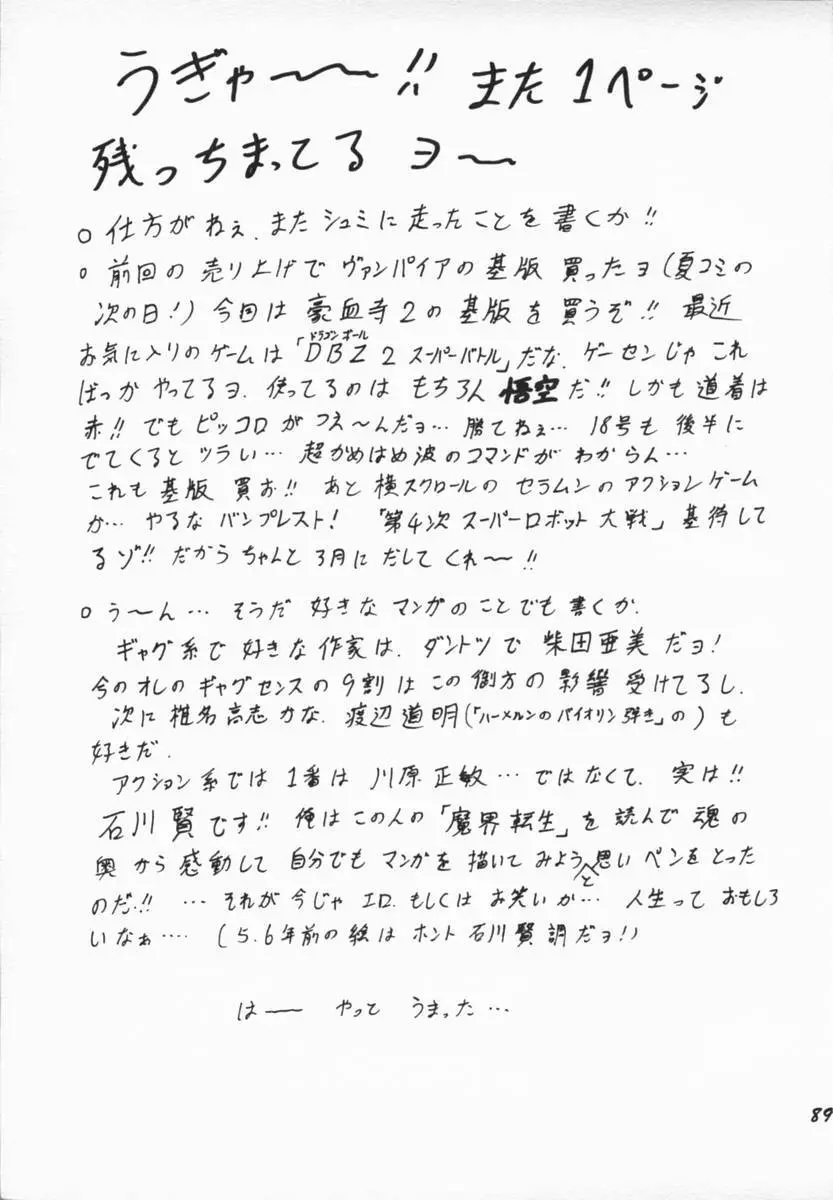 うぎゃ〜〜!! また1ページ
残っちまってるヨ〜
○仕方がねぇ、またシュミに走ったことを書くか!!
○前回の売り上げでヴァンパイアの基版買ったヨ(夏コミの
次の日!)今回は豪血寺2の基版を買うぞ!! 最近
お気に入りのゲームは「DBZ2スーパーバトル」だな、ゲーセンじゃこれ
ドラゴンボール
ばっかやってるヨ、使ってるのはもちろん悟空だ!! しかも道着は
赤!! でもピッコロがつえ〜んだョ… 勝てねぇ… 18号も後半に
でてくるとツラい… 超かめはめ波のコマンドがわからん…
これも基版買お!! あと横スクロールのセラムンのアクションゲーム
か… やるなバンプレスト! 「第4次スーパーロボット大戦」基待して
るゾ!! だからちゃんと3月にだしてくれ〜!!
○う〜ん… そうだ好きなマンガのことでも書くか、
ギャグ系で好きな作家は、ダントツで柴田亜美だヨ!
今のオレのギャグセンスの9割はこの御方の影響受けてるし、
次に椎名高志かな、渡辺道明(「ハーメルンのバイオリン弾き」の)も
好きだ、
アクション系では1番は川原正敏…ではなくて、実は!!
石川賢です!! 俺はこの人の「魔界転生」を読んで魂の
奥から感動して自分でもマンガを描いてみようと思いペンをとった
のだ!! …それが今じゃエロ、もしくはお笑いか… 人生っておもしろ
いなぁ…… (5、6年前の絵はホント石川賢調だヨ!)
は── やって うまった…
89